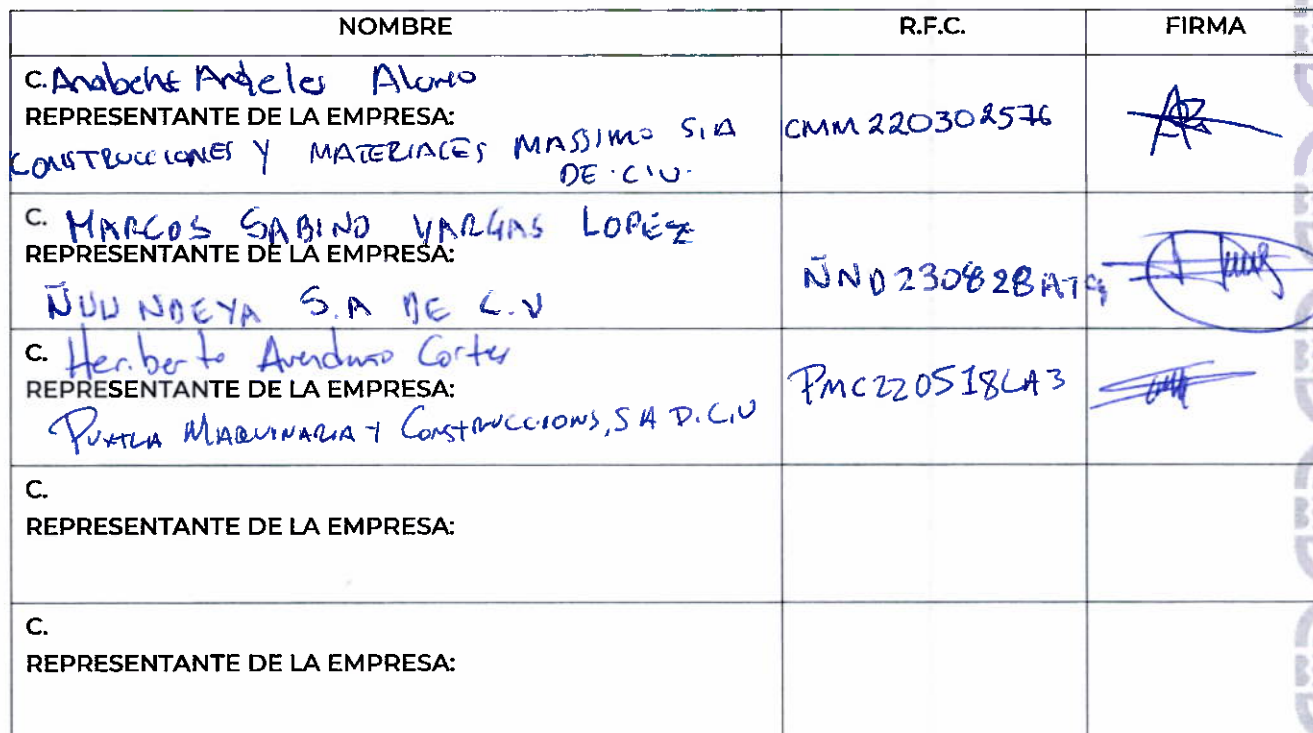 NOMBRE R.F.C. FIRMA
C. Anabehe Angeles Alonso
REPRESENTANTE DE LA EMPRESA:
CONSTRUCCIONES Y MATERIALES MASSIMO S.A CMM220302576
DE C.V.
C. MARCOS SABINO VARGAS LOPEZ
REPRESENTANTE DE LA EMPRESA:
ÑUU NDEYA S.A DE C.V ÑND230828AT9
C. Heriberto Avendaño Cortes
REPRESENTANTE DE LA EMPRESA: PMC220518LA3
PUXTLA MAQUINARIA Y CONSTRUCCIONS, S A D. C.V
C.
REPRESENTANTE DE LA EMPRESA:
C.
REPRESENTANTE DE LA EMPRESA: